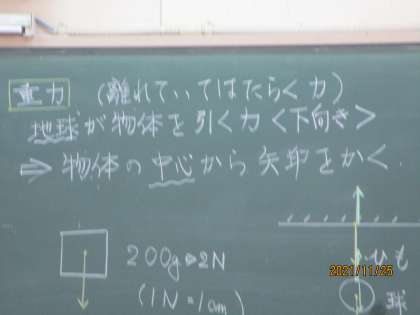 重力 (離れていてはたらく力)
地球が物体を引く力<下向き>
⇒ 物体の中心から矢印をかく
200g➡2N
(1N=1cm)
ひも
球
2021/11/25